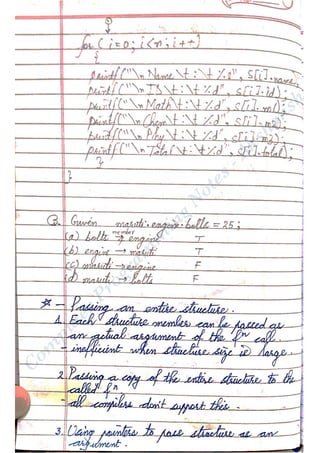 for ( i=0; i<n; i++)
{
printf("\n Name \t : \t %s", s[i].name);
printf("\n ID \t : \t %d", s[i].id);
printf("\n Math \t : \t %d", s[i].m1);
printf("\n Chem \t : \t %d", s[i].m2);
printf("\n Phy \t : \t %d", s[i].m3);
printf("\n Total \t : \t %d", s[i].total);
}
}
Q. Given maruti.engine.bolts = 25;
member
(a) bolts → engine T
(b) engine → maruti T
(c) maruti → engine F
(d) maruti → bolts F
* - Passing an entire structure.
1. Each structure member can be passed as
an actual argument of the fⁿ call.
- inefficient when structure size is large.
2. Passing a copy of the entire structure to the
called fⁿ
- all compilers don't support this.
3. Using pointers to pass structure as an
argument.